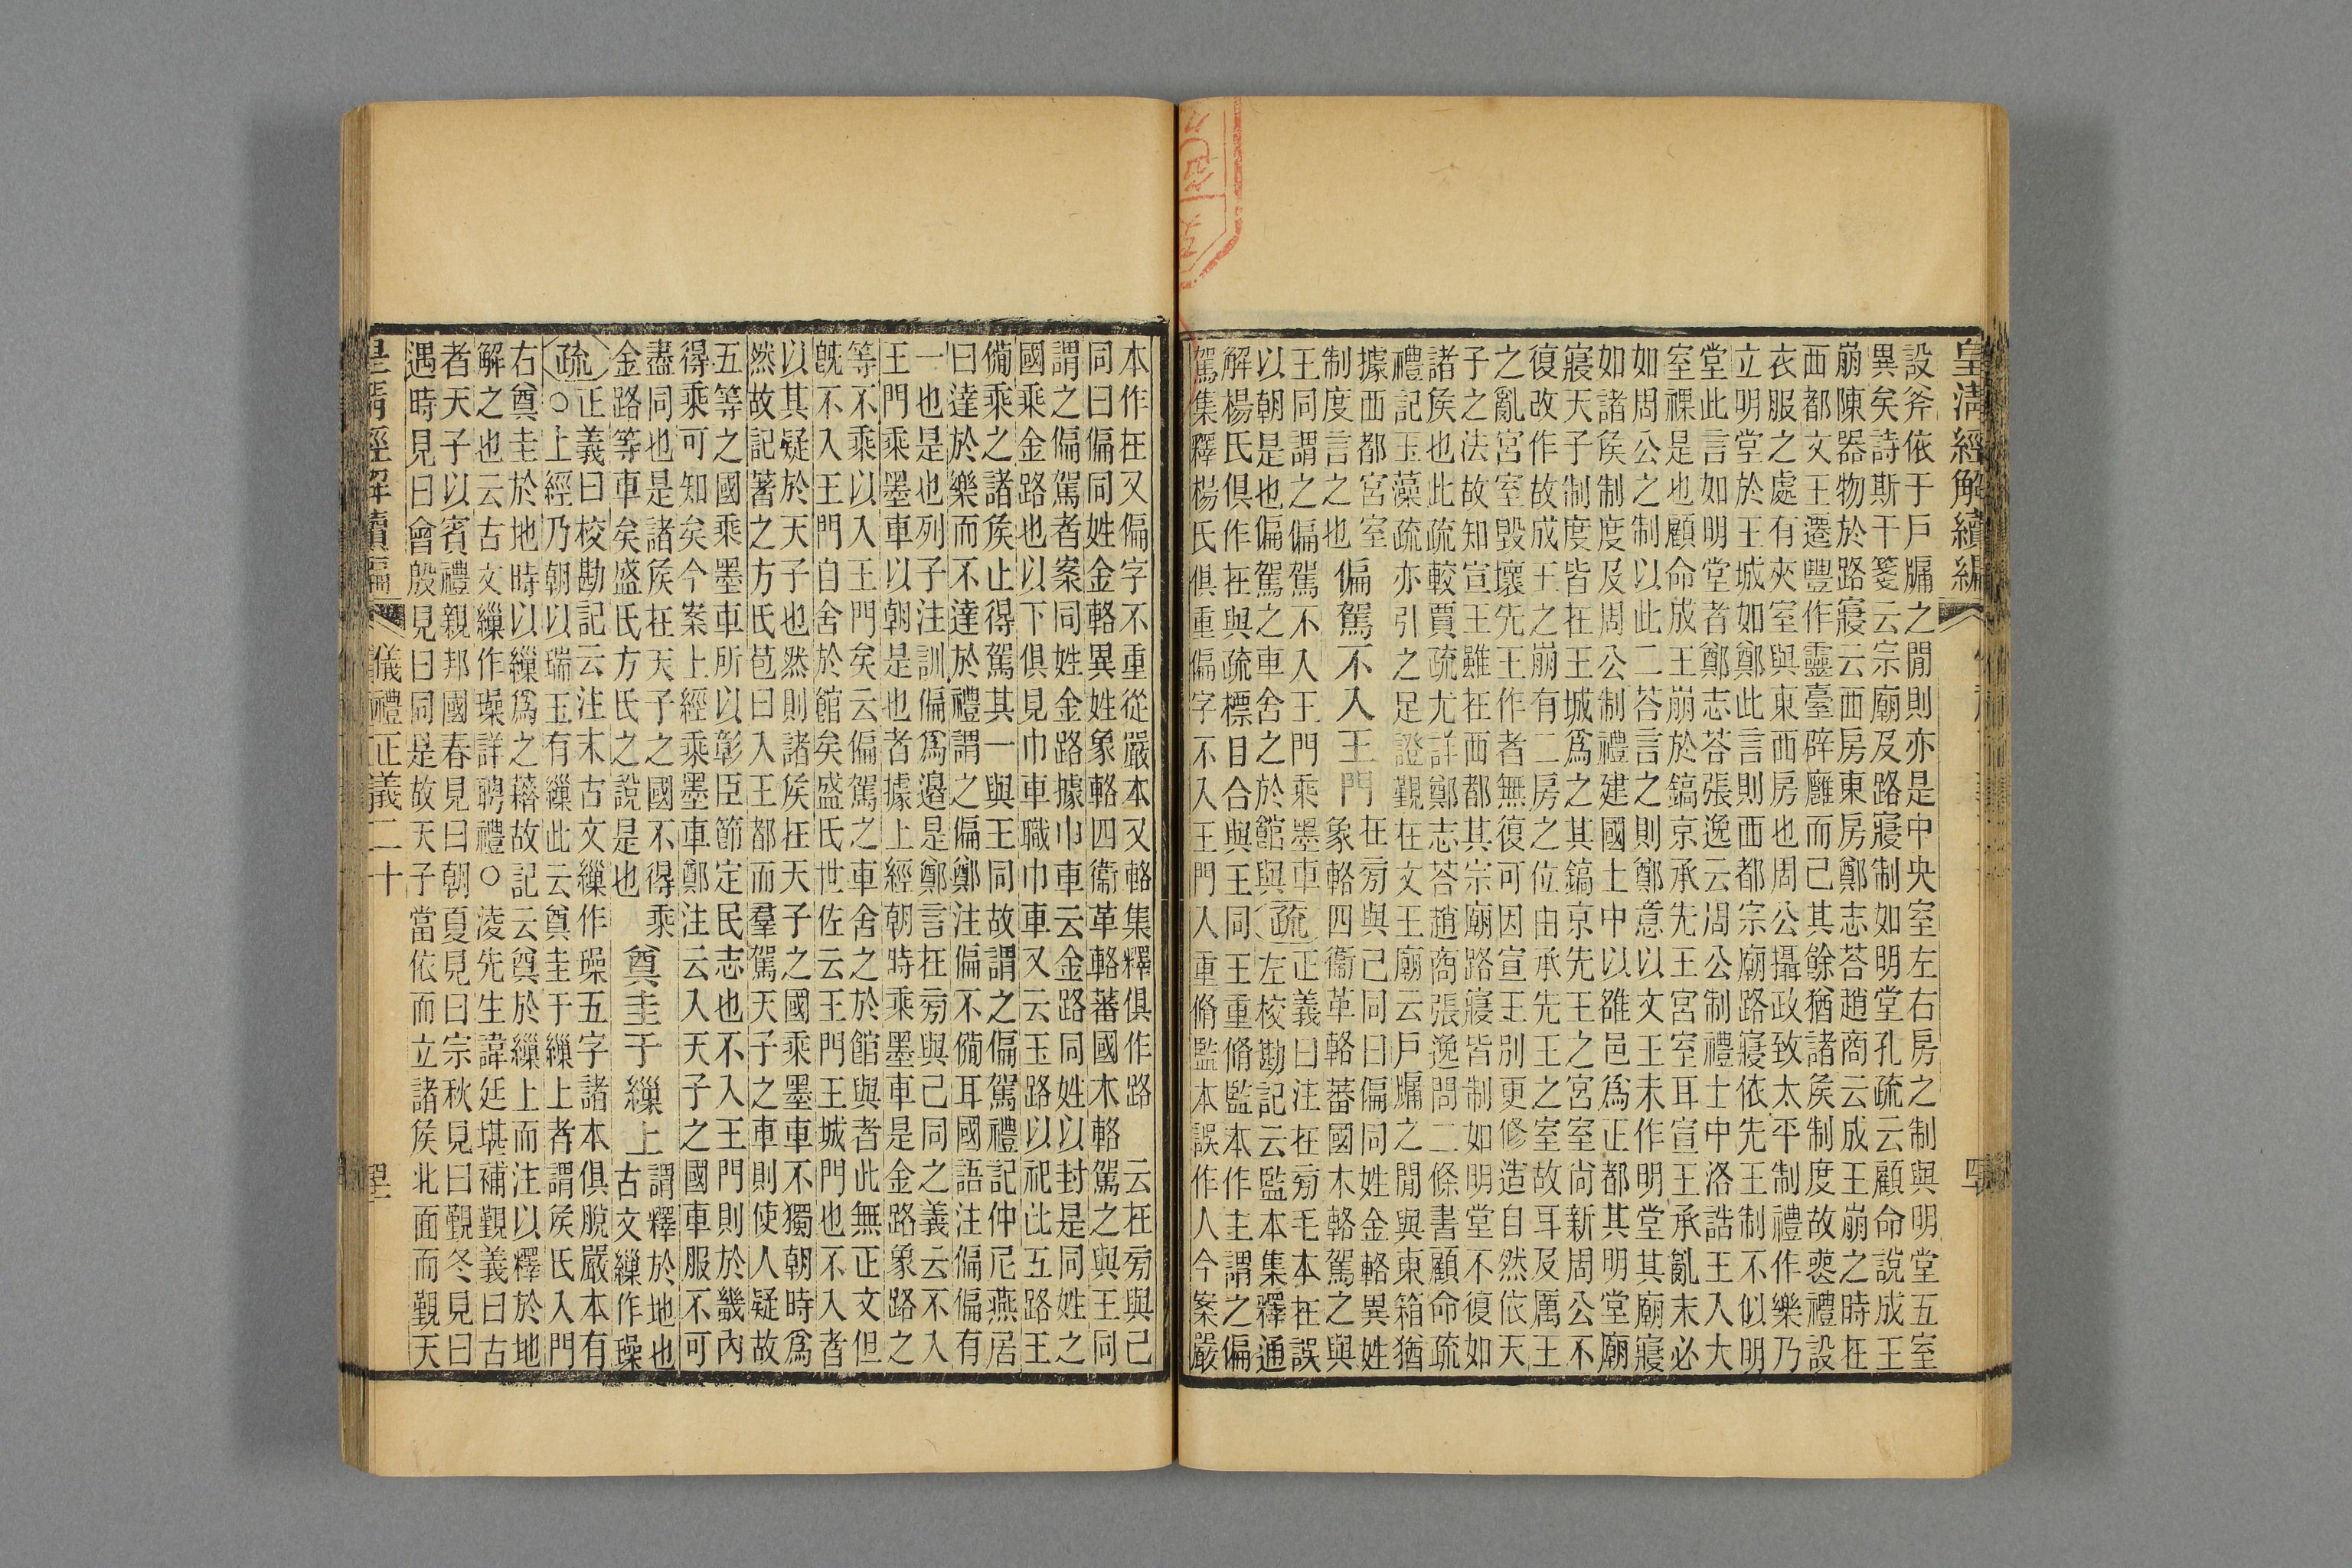 皇清經解續編
設斧依于戶牖之閒則亦是中央室左右房之制與明堂五室
異矣詩斯干箋云宗廟及路寢制如明堂孔疏云顧命說成王
崩陳器物於路寢云西房東房鄭志荅趙商云成王崩之時在
西都文王遷豐作靈臺辟廱而已其餘猶諸矦制度故䘮禮設
衣服之處有夾室與東西房也周公攝政致太平制禮作樂乃
立明堂於王城如鄭此言則西都宗廟路寢依先王制不似明
堂此言如明堂者鄭志荅張逸云周公制禮士中洛誥王入大
室祼是也顧命成王崩於鎬京承先王宮室耳宣王承亂末必
如周公之制以此二荅言之則鄭意以文王未作明堂其廟寢
如諸矦制度及周公制禮建國土中以雒邑爲正都其明堂廟
寢天子制度皆在王城爲之其鎬京先王之宮室尚新周公不
復改作故成王之崩有二房之位由承先王之室故耳及厲王
之亂宮室毀壞先王作者無復可因宣王別更修造自然依天
子之法故知宣王雖在西都其宗廟路寢皆制如明堂不復如
諸矦也此疏較賈疏尤詳鄭志荅趙商張逸問二條書顧命疏
禮記玉藻疏亦引之足證覲在文王廟云戶牖之閒與東箱猶
據西都宮室
制度言之也
偏駕不入王門
在旁與己同曰偏同姓金輅異姓
象輅四衞革輅蕃國木輅駕之與
王同謂之偏駕不入王門乘墨車
以朝是也偏駕之車舍之於館與
疏
正義曰注在旁毛本在誤
左校勘記云監本集釋通
解楊氏俱作在與疏標目合與王同王重脩監本作主謂之偏
駕集釋楊氏俱重偏字不入王門人重脩監本誤作人今案嚴
本作在又偏字不重從嚴本又輅集釋俱作路　云在旁與己
同曰偏同姓金輅異姓象輅四衞革輅蕃國木輅駕之與王同
謂之偏駕者案同姓金路據巾車云金路同姓以封是同姓之
國乘金路也以下俱見巾車職巾車又云玉路以祀此五路王
備乘之諸矦止得駕其一與王同故謂之偏駕禮記仲尼燕居
曰達於樂而不達於禮謂之偏鄭注偏不備耳國語注偏偏有
一也是也列子注訓偏爲邉是鄭言在旁與己同之義云不入
王門乘墨車以朝是也者據上經朝時乘墨車是金路象路之
等不乘以入王門矣云偏駕之車舍之於館與者此無正文但
旣不入王門自舍於館矣盛氏世佐云王門王城門也不入者
以其疑於天子也然則諸矦在天子之國乘墨車不獨朝時爲
然故記著之方氏苞曰入王都而羣駕天子之車則使人疑故
五等之國乘墨車所以彰臣節定民志也不入王門則於畿內
得乘可知矣今案上經乘墨車鄭注云入天子之國車服不可
盡同也是諸矦在天子之國不得乘
金路等車矣盛氏方氏之說是也
奠圭于繅上
謂釋於地也
古文繅作璪
疏
正義曰校勘記云注末古文繅作璪五字諸本俱脫嚴本有
○上經乃朝以瑞玉有繅此云奠圭于繅上者謂矦氏入門
右奠圭於地時以繅爲之藉故記云奠於繅上而注以釋於地
解之也云古文繅作璪詳聘禮○淩先生諱廷堪補覲義曰古
者天子以賓禮親邦國春見曰朝夏見曰宗秋見曰覲冬見曰
遇時見曰會殷見曰同是故天子當依而立諸矦北面而覲天
皇清經解續編
儀禮正義二十